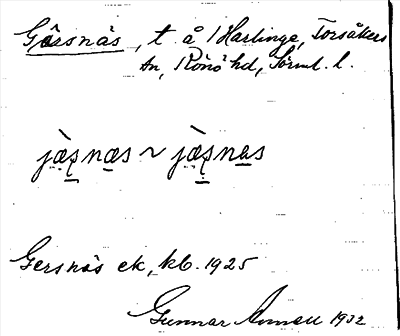 Gärsnäs, t. å Harlinge, Torsåkers
sn, Rönö hd, Sörml. l.
jæ̀ʂnæs ~ jæ̀ʂnas
Gersnäs ek, kb. 1925
Gunnar 1932